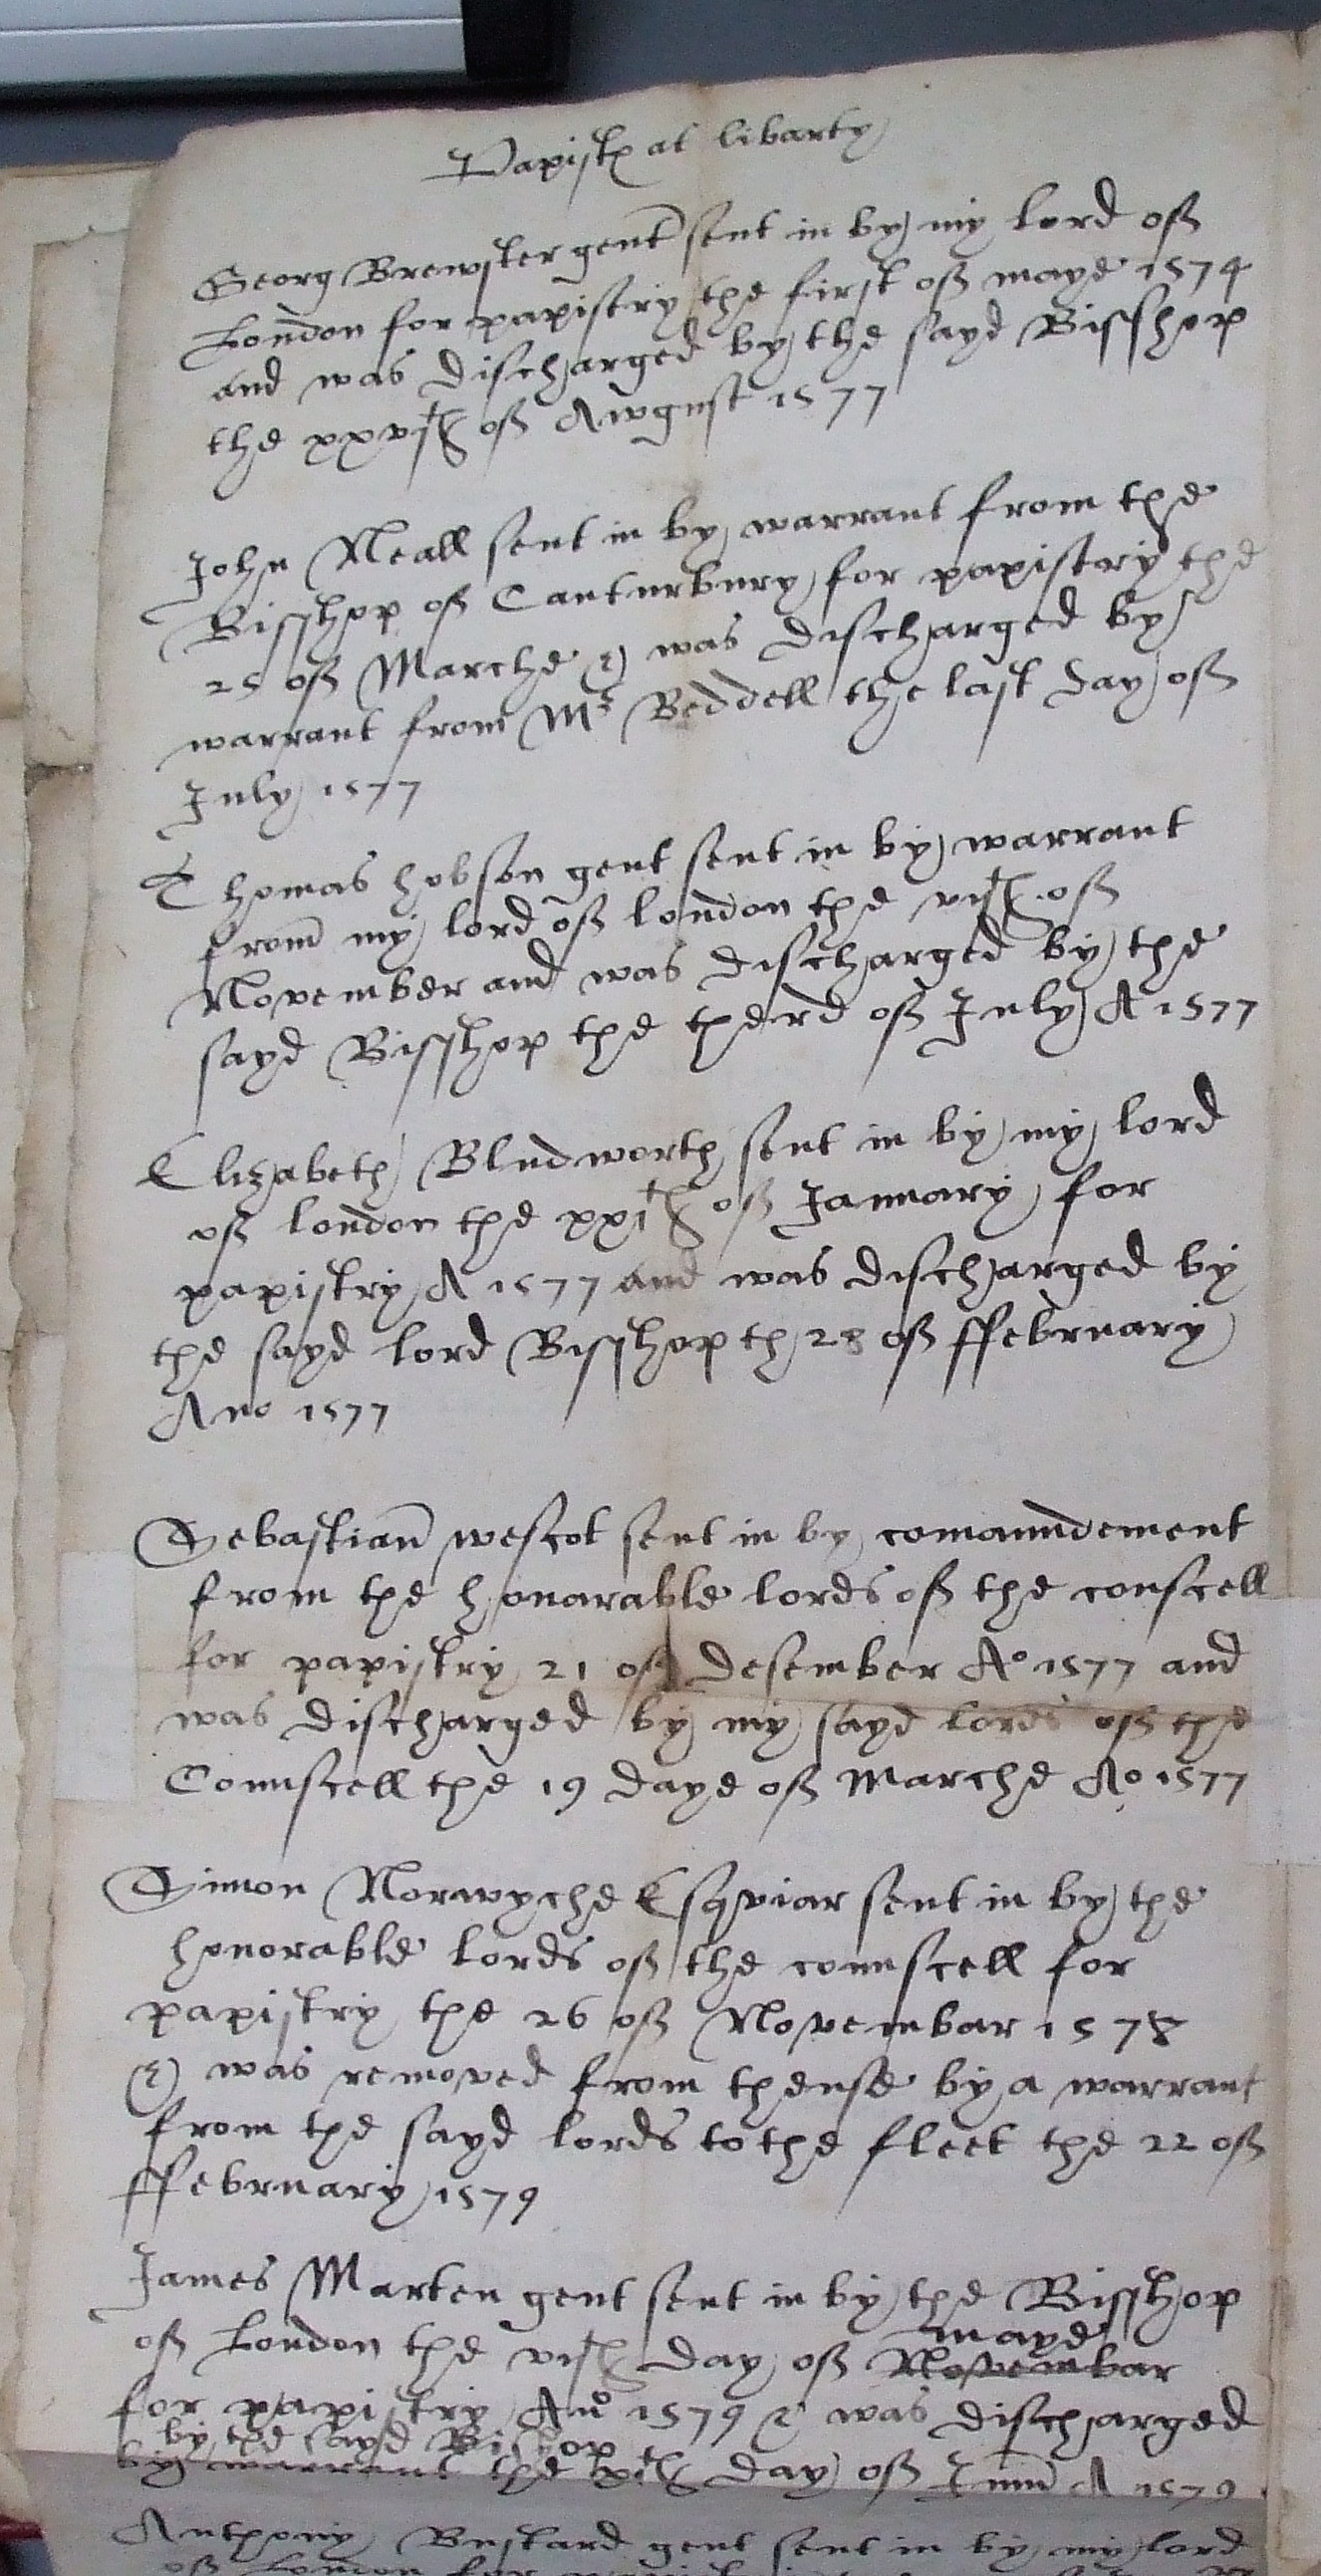 Papistes at libarty
Georg Brewster gent sent in by my lord off
London for papistry the first off maye 1574
and was discharged by the sayd Bisshop
the xxvjth off Awgust 1577
John Neall sent in by warrant from the
Bisshop off Canturbury for papistry the
25 off Marche & was discharged by
warrant from Mr Beddell the last day off
July 1577
Thomas hobson gent sent in by warrant
from my lord off london the vjth off
November and was discharged by the
sayd Bisshop the therd off July A 1577
Elizabeth Bludworth sent in by my lord
off london the xxjth off January for
papistry A 1577 and was discharged by
the sayd lord Bisshop th 28 off ffebruary
Ano 1577
Sebastian wescot sent in by comaundement
from the honarable lords off the conscell
for papistry 21 off desember Ao 1577 and
was discharged by my sayd lords off the
Counscell the 19 daye off Marche Ao 1577
Simon Norwyche Esqviar sent in by the
honorable lords off the counscell for
papistry the 26 off Novembar 1578
& was removed from thense by a warrant
from the sayd lords to the fleet the 22 off
ffebruary 1579
James Marten gent sent in by the Bisshop
off London the vjth day off Novembar maye
for papistry Ano 1579 & was discharged
by the sayd Bishop
by warrant the xjth day off Jun A 1579
Anthony Bustard gent sent in by my lord
off London for